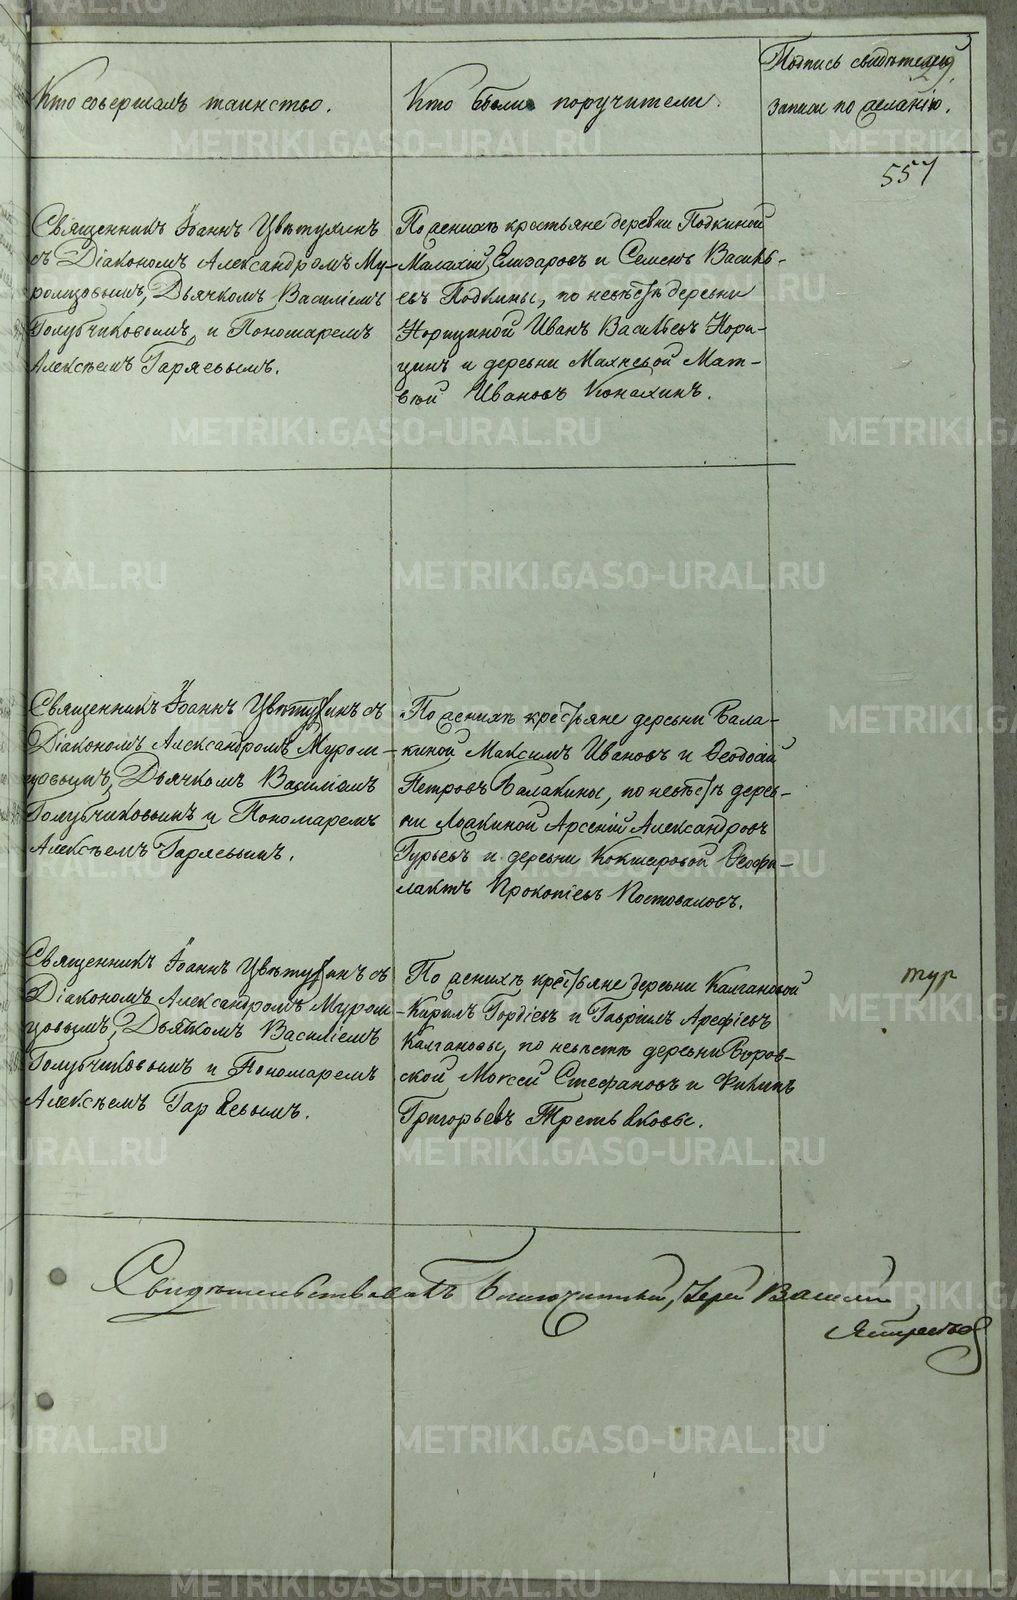 Кто совершалъ таинство.
Кто были поручители.
Подпись свидѣтелей
записи по желанію.
29.
557
Священникъ Іоаннъ Цвѣтухинъ
съ Діакономъ Александромъ Му-
ромцовымъ, Дьячкомъ Василіемъ
Голубчиковымъ, и Пономаремъ
Алексѣемъ Гаряевымъ.
По женихѣ крестьяне деревни Подкиной
Малахій Елизаровъ и Семенъ Василь-
евъ Подкины, по невѣстѣ деревни
Норициной Иванъ Васильевъ Нори-
цинъ и деревни Махневой Мат-
вѣй Ивановъ Конахинъ.
Священникъ Іоаннъ Цвѣтухинъ съ
Діакономъ Александромъ Муром-
цовымъ, Дьячкомъ Василіемъ
Голубчиковымъ и Пономаремъ
Алексѣемъ Гаряевымъ.
По женихѣ крестьяне деревни Бала-
киной Максимъ Ивановъ и Ѳеодосій
Петровъ Балакины, по невѣстѣ дерев-
ни Лоакиной Арсеній Александровъ
Гурьевъ и деревни Кокшаровой Ѳеофи-
лактъ Прокопіевъ Постоваловъ.
Священникъ Іоаннъ Цвѣтухинъ съ
Діакономъ Александромъ Муром-
цовымъ, Дьячкомъ Василіемъ
Голубчиковымъ и Пономаремъ
Алексѣемъ Гаряевымъ.
По женихѣ крестьяне деревни Калгановой
Кирилъ Гордіевъ и Гаврилъ Арефіевъ
Калгановы, по невѣстѣ деревни Боров-
ской Моисей Стефановъ и Филипъ
Григорьевъ Третьяковы.
тур
Свидѣтельствовалъ Благочинный, Іерей Василій